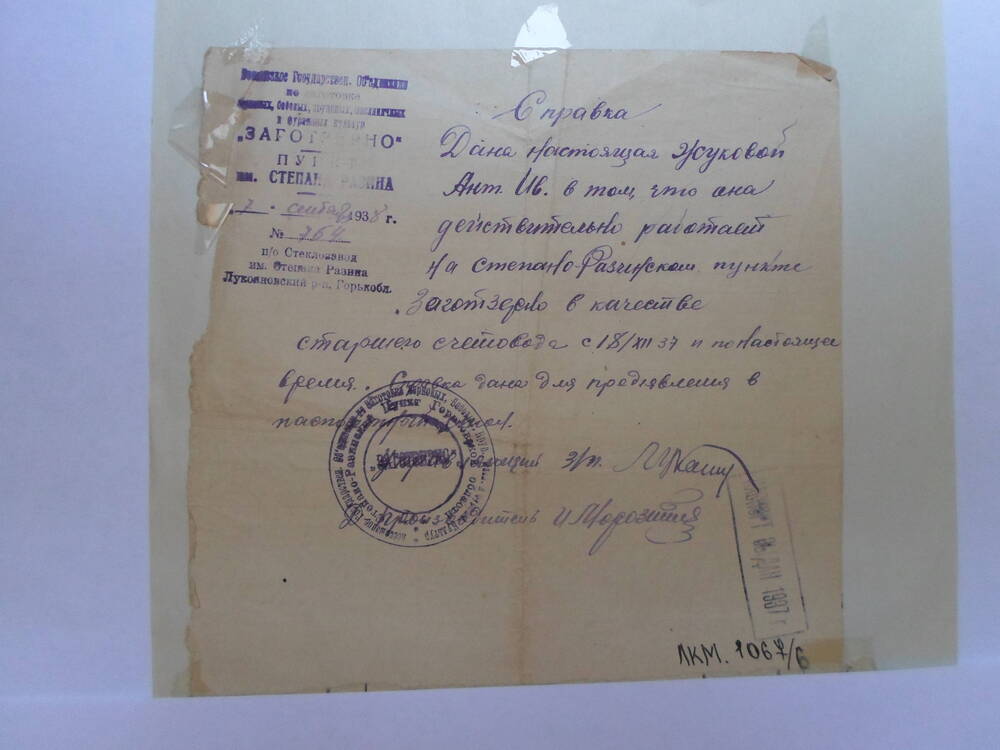 Всесоюзное Государствен. Об'единение
по заготовке
зерновых, бобовых, крупяных, масличных
и фуражных культур
„ЗАГОТЗЕРНО"
ПУНКТ
им. СТЕПАНА РАЗИНА
„7" сентяб 1938 г.
№ 764
п/о Стеклозавод
им. Степана Разина
Лукояновский р-н, Горькобл.
Справка
Дана настоящая Жуковой
Ант. Ив. в том, что она
действительно работает
на Степано-Разинском пункте
Заготзерно в качестве
старшего счетовода с 18/XII 37 и по настоящее
время. Справка дана для предявления в
паспортный стол.
Управляющий з/п.
производитель
Степано-Разинский Пункт Горьковской области
"Заготзерно"
1987 г
ЛКМ. 1067/6